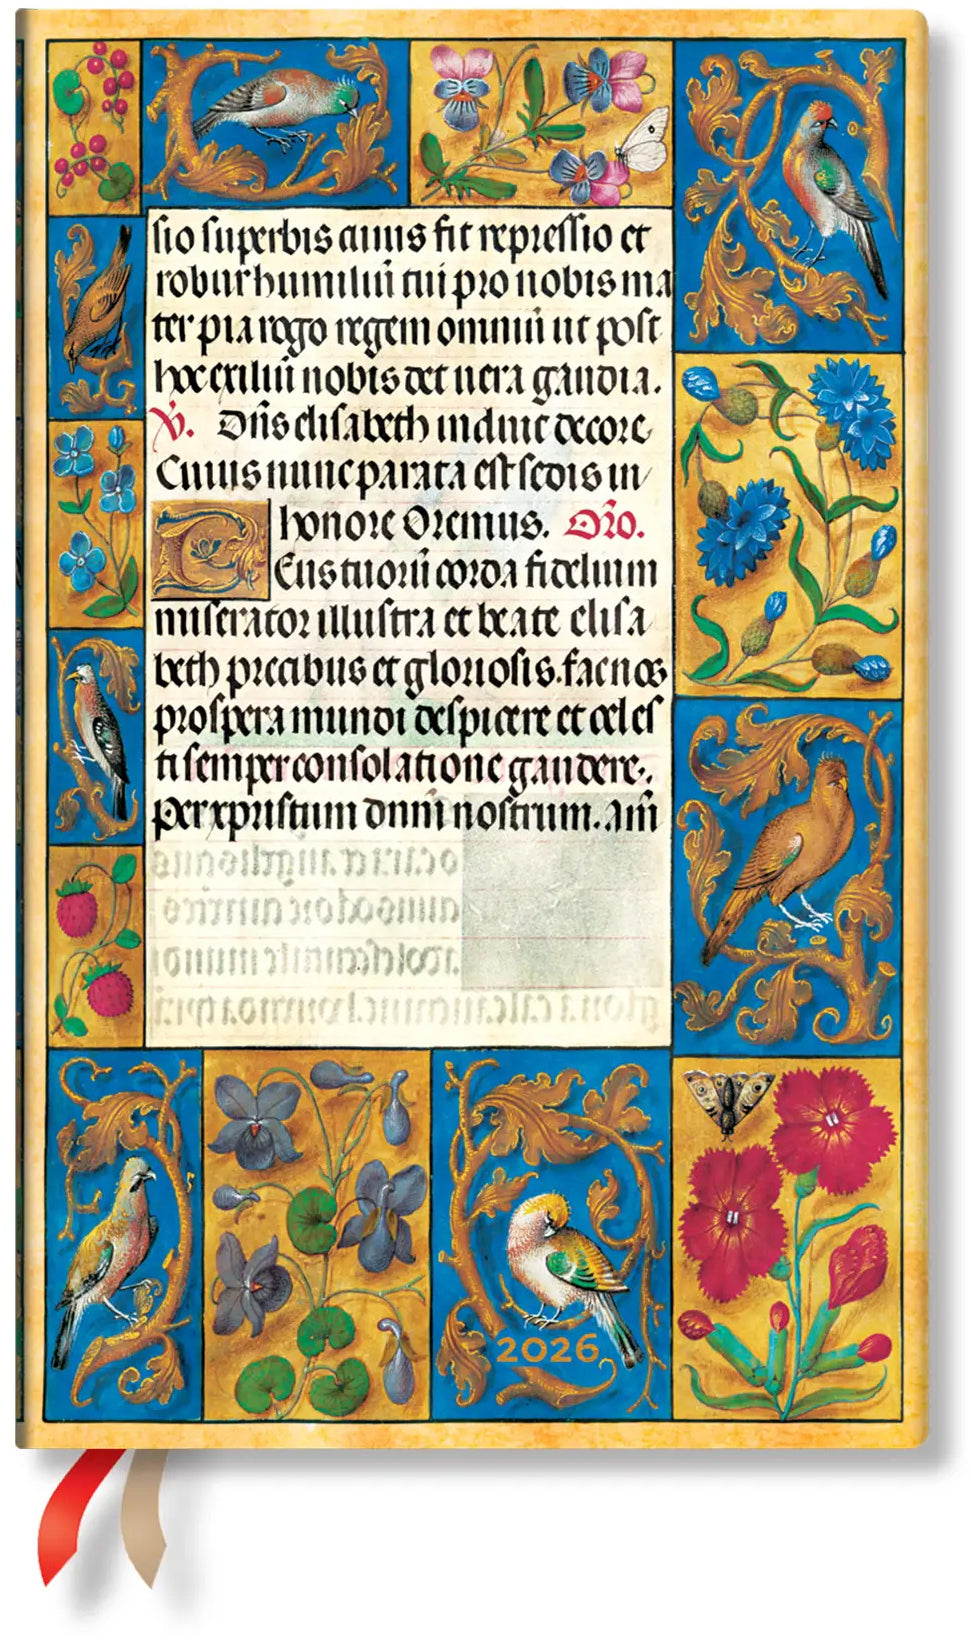 sio superbis cuius fit repressio et
robur humiliū tui pro nobis ma
ter pia rogo regem omniū ut post
hoc exiliū nobis det uera gaudia.
V. Dn̄s elisabeth induit decore
Cuius nunc parata est sedis in
honore Oremus. Or̄o.
DEus tuorū corda fidelium
miserator illustra et beate elisa
beth precibus et gloriosis. fac nos
prospera mundi despicere et celes
ti semper consolatione gaudere.
Per xpristum dnm̄ nostrum. Am̄
2026